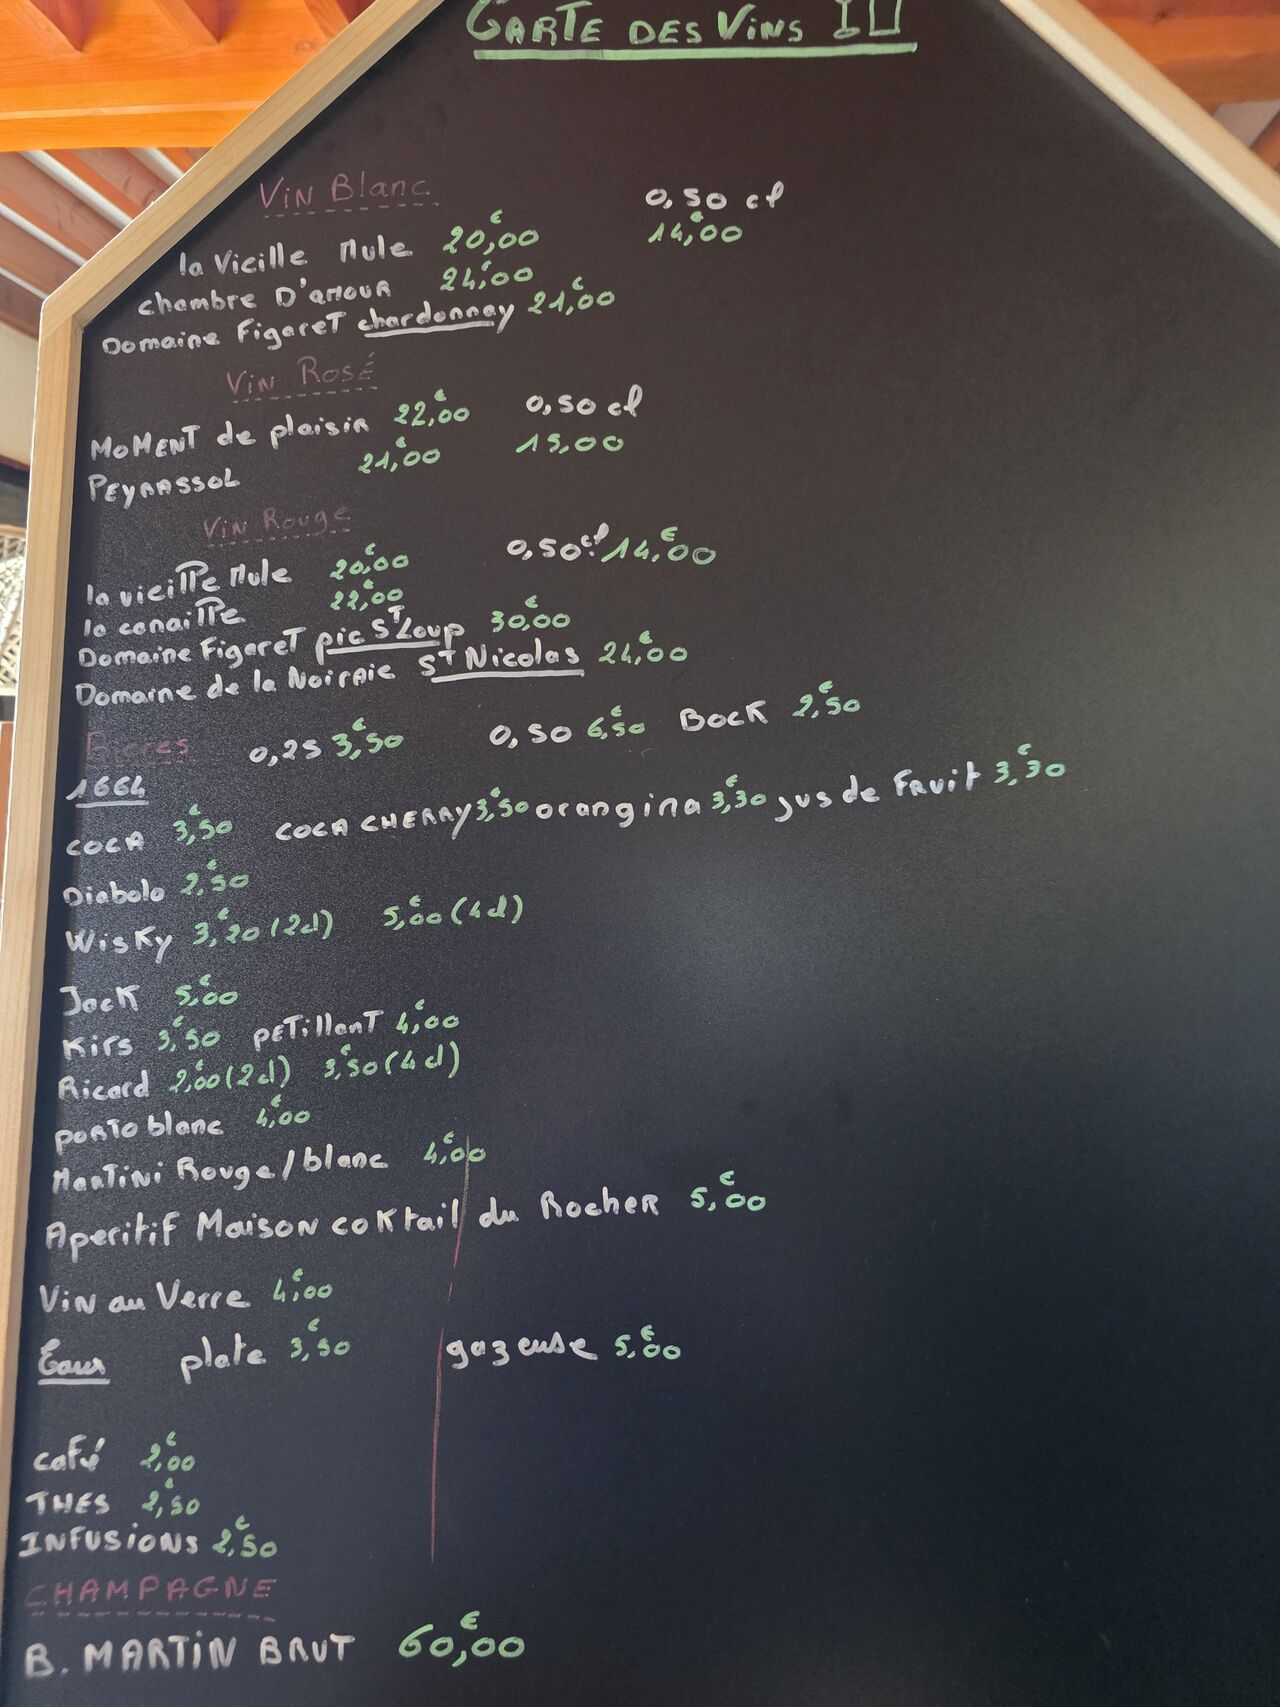 CARTE DES VINS
Vin Blanc 0,50 cl
la Vieille Mule 20,00€ 14,00€
chambre D'AMOUR 24,00€
Domaine Figaret chardonnay 21,00€
Vin Rosé
MoMENT de plaisir 22,00€ 0,50 cl
PEYRASSOL 21,00€ 15,00
Vin Rouge
la vieille Mule 20,00€ 0,50cl 14,00€
la canaille 22,00€
Domaine Figaret pic ST Loup 30,00€
Domaine de la Noiraie ST Nicolas 24,00€
Bieres 0,25 3,50€ 0,50 6,50€ BOCK 2,50€
1664
COCA 3,50€ COCA CHERRY 3,50€ orangina 3,30€ jus de Fruit 3,30€
Diabolo 2,50€
WisKy 3,20€ (2d) 5,00€ (4d)
JacK 5,00€
Kirs 3,50€ PETillanT 4,00€
Ricard 2,00€ (2d) 3,50€ (4d)
PORTO blanc 4,00€
MARTiNi Rouge/blanc 4,00€
Aperitif Maison coKtail du Rocher 5,00€
Vin au Verre 4,00€
Eaux plate 3,50€ gazeuse 5,00€
café 2,00€
THES 2,50€
INFUSIONS 2,50€
CHAMPAGNE
B. MARTIN BRUT 60,00€